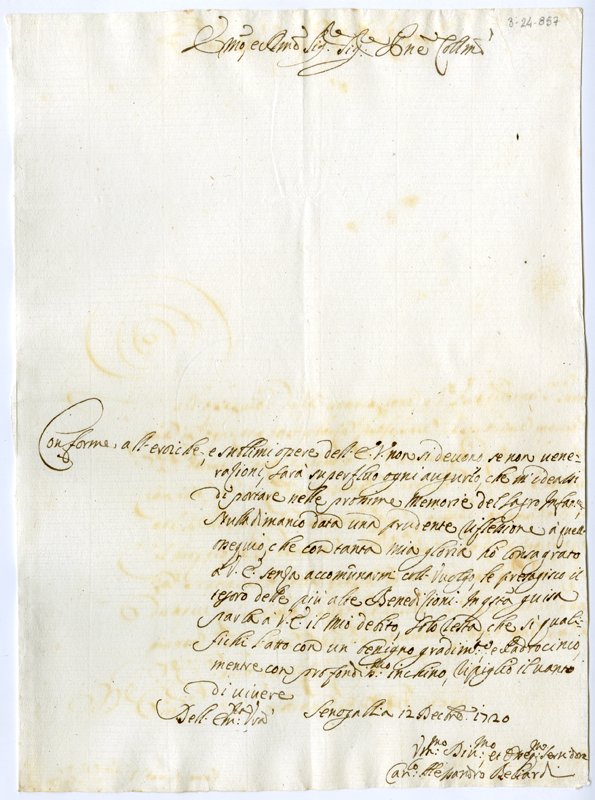 3-24-857
Emo, e Rmo Sig.re Sig.re Pne Collmo
Conforme all'eroiche, e sublimi opere dell'E. V. non si devono se non vene-
razioni, sarà superfluo ogni augurio, che m'ideassi
di portare nelle prossime Memorie del Sagro Infante,
Nulladimanco data una prudente riflessione à quell'
ossequio, che con tanta mia gloria hò consagrato
à V. E. senza accomunarmi coll Vuolgo le presagisco il
tesoro delle più alte Benedizioni. In gsta guisa
parla à V. E. il mio debito, solo resta che si quali-
fichi l'atto con un benigno gradim.to e Padrocinio,
mentre con profondis.mo inchino, ripiglio il vanto
di vivere
Dell' Em.za Vra Senogallia 12 Decbre 1720
Vm.mo Div.mo et Obblig.mo Servidore
Can.co Alessandro